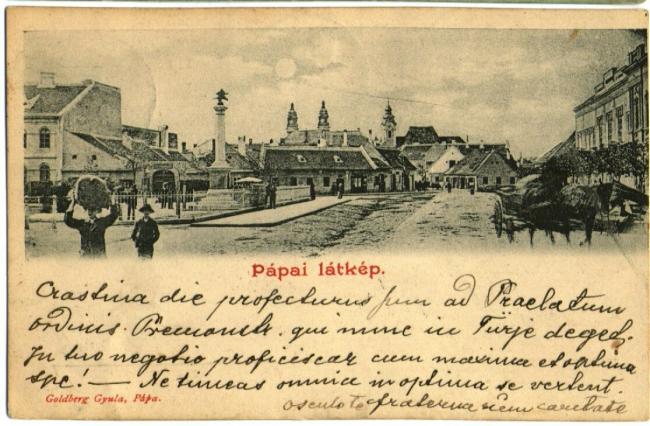 Pápai látkép.
Crastina die profecturus sum ad Praelatum
ordinis Premonstr. qui nunc in Türje deged.
In tuo negotio proficiscar cum maxima et optima
spe! — Ne timeas omnia in optima se vertent.
Goldberg Gyula, Pápa.
Osculo te fraterna cum caritate